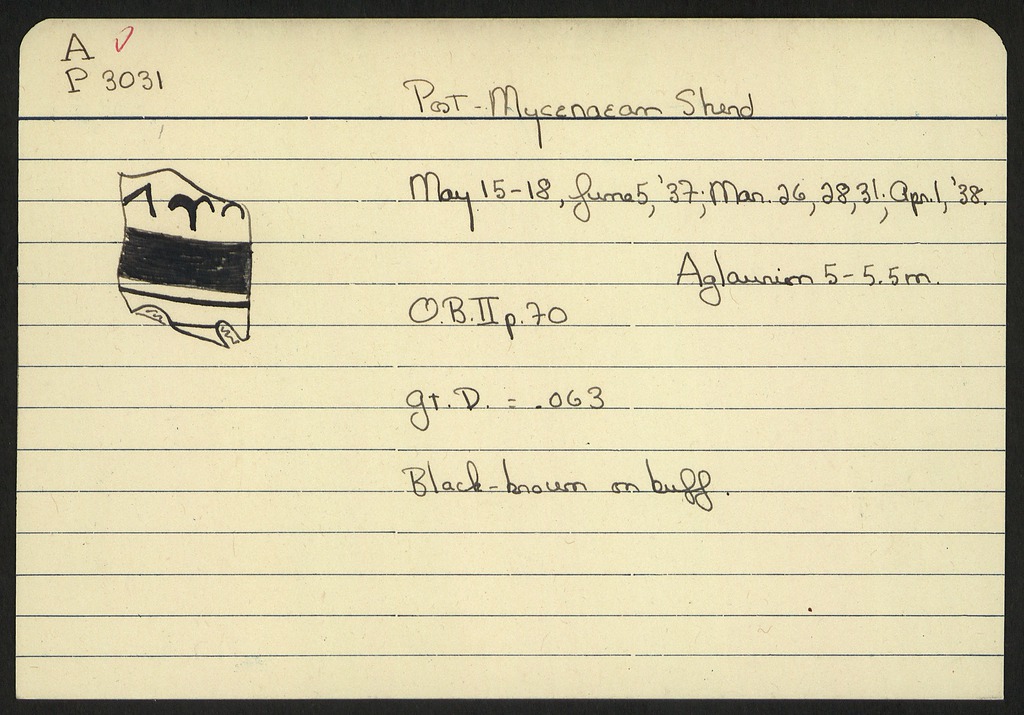 A
P 3031
Post-Mycenaean Sherd
May 15-18, June 5, '37; Mar. 26, 28, 31; Apr. 1, '38.
Aglaurion 5-5.5m.
O.B. II p. 70
gt. D. = .063
Black-brown on buff.